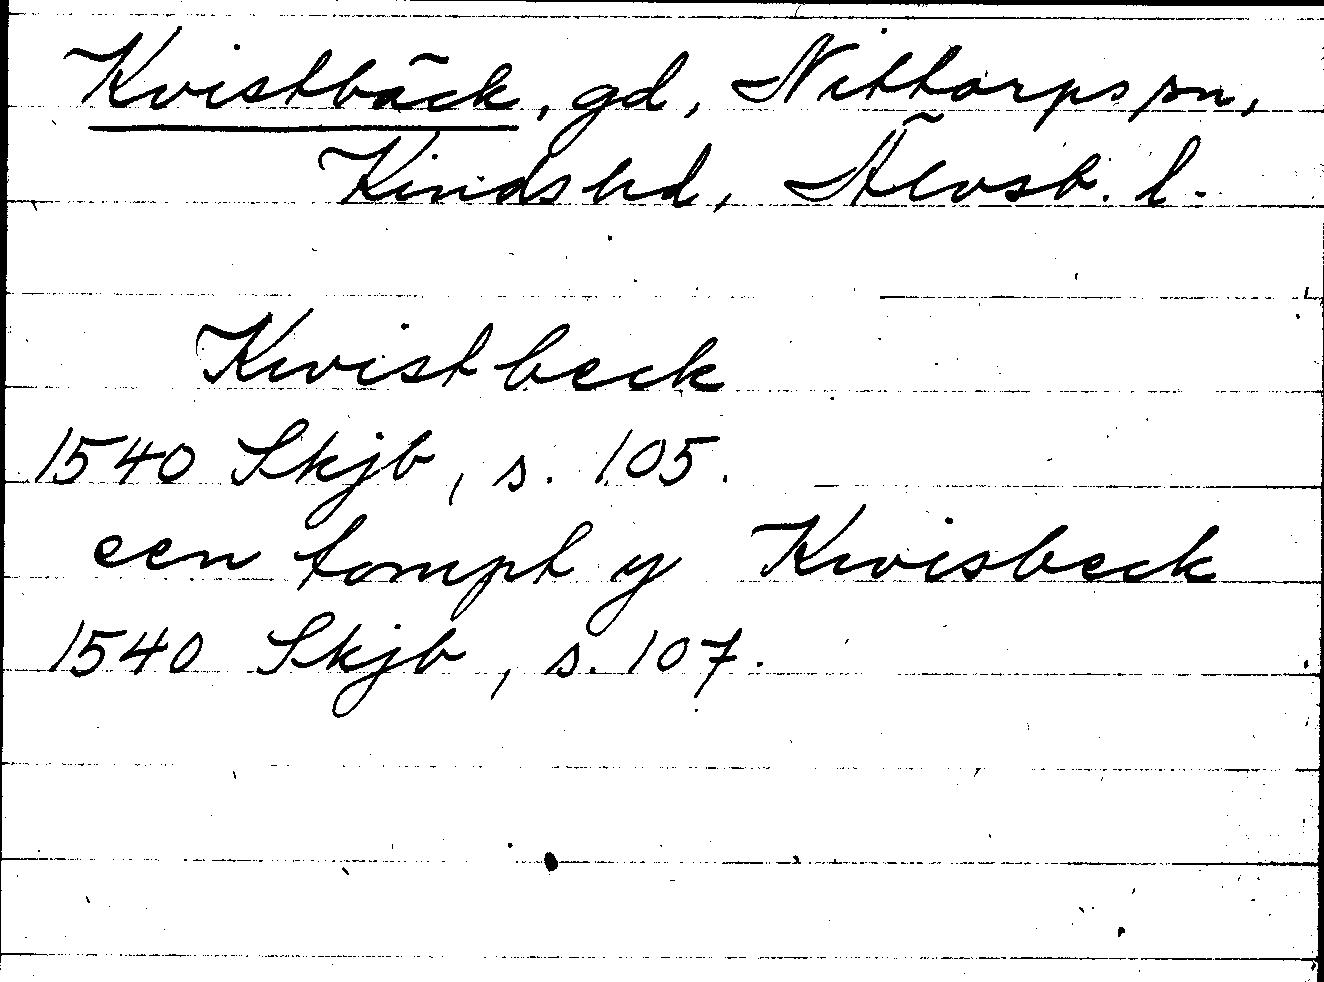 Kvistbäck, gd, Nittorps sn,
Kinds hd, Älvsb. l.
Kwistbeck
1540 Skjb, s. 105.
een tompt y Kwisbeck
1540 Skjb, s. 107.